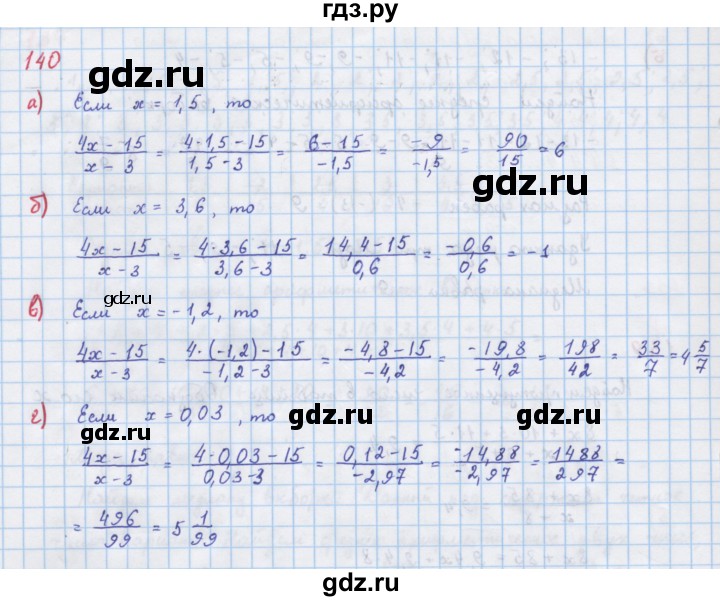 гдз.ру
140
а) Если x = 1,5, то
(4x - 15)/(x - 3) = (4·1,5 - 15)/(1,5 - 3) = (6 - 15)/(-1,5) = (-9)/(-1,5) = 90/15 = 6
gdz.ru
б) Если x = 3,6, то
(4x - 15)/(x - 3) = (4·3,6 - 15)/(3,6 - 3) = (14,4 - 15)/(0,6) = (-0,6)/(0,6) = -1
gdz.ru
в) Если x = -1,2, то
gdz.ru
(4x - 15)/(x - 3) = (4·(-1,2) - 15)/(-1,2 - 3) = (-4,8 - 15)/(-4,2) = (-19,8)/(-4,2) = 198/42 = 33/7 = 4 5/7
г) Если x = 0,03, то
gdz.ru gdz.ru
(4x - 15)/(x - 3) = (4·0,03 - 15)/(0,03 - 3) = (0,12 - 15)/(-2,97) = (-14,88)/(-2,97) = 1488/297 =
= 496/99 = 5 1/99
gdz.ru
gdz.ru